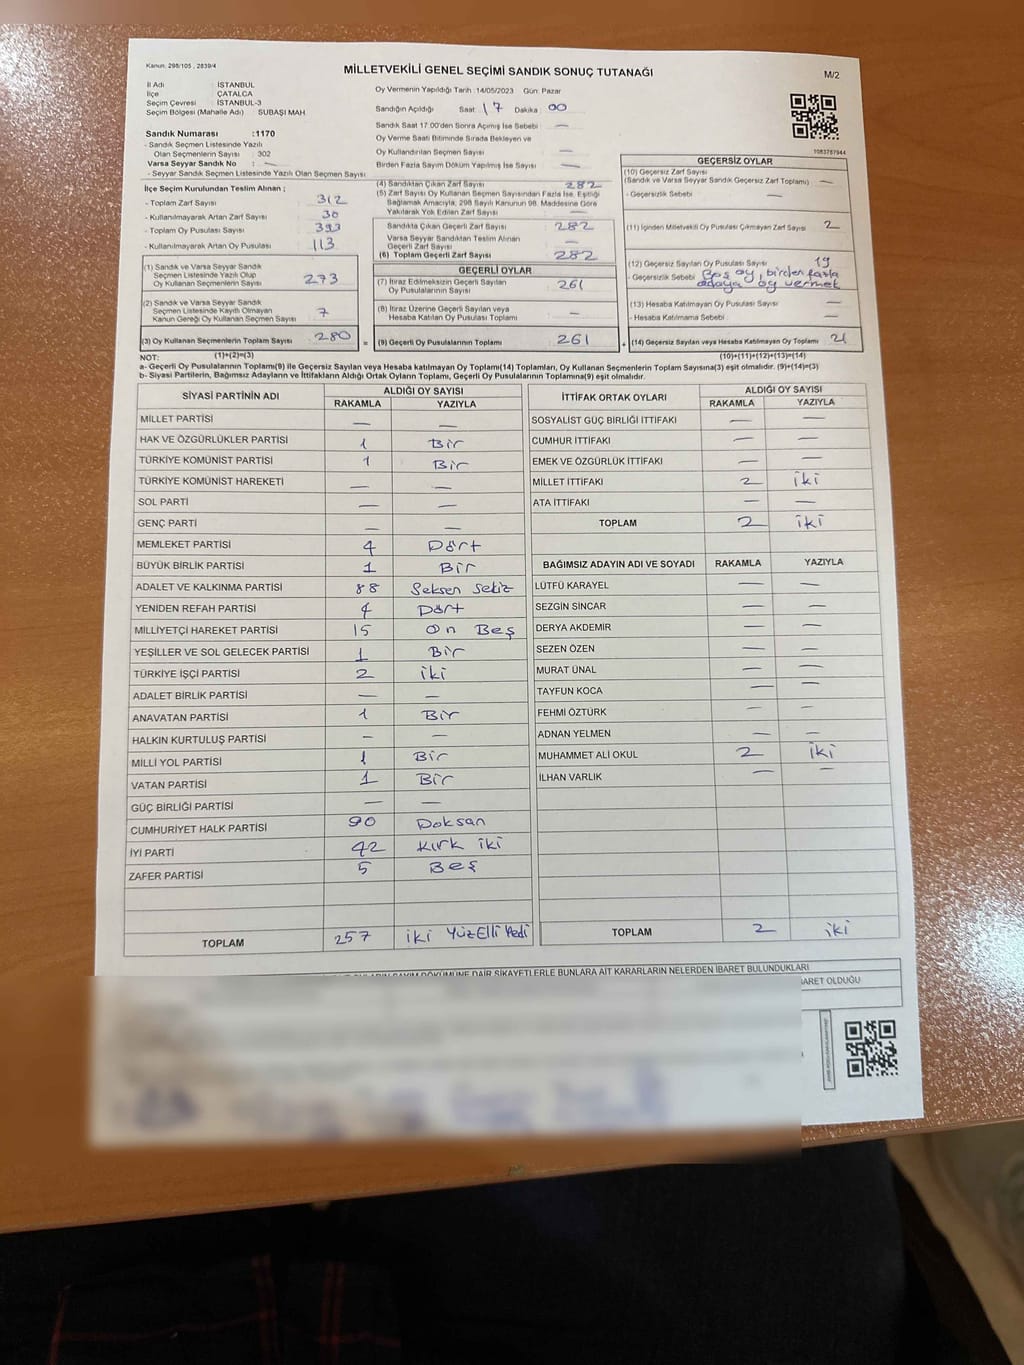 Kanun: 298/105 , 2839/4
MİLLETVEKİLİ GENEL SEÇİMİ SANDIK SONUÇ TUTANAĞI
M/2
İl Adı : İSTANBUL
İlçe : ÇATALCA
Seçim Çevresi : İSTANBUL-3
Seçim Bölgesi (Mahalle Adı) : SUBAŞI MAH
Sandık Numarası :1170
- Sandık Seçmen Listesinde Yazılı
Olan Seçmenlerin Sayısı : 302
Varsa Seyyar Sandık No : —
- Seyyar Sandık Seçmen Listesinde Yazılı Olan Seçmenlerin Sayısı :
Oy Vermenin Yapıldığı Tarih :14/05/2023 Gün: Pazar
Sandığın Açıldığı Saat : 17 Dakika : 00
Sandık Saat 17:00'den Sonra Açılmış İse Sebebi : —
Oy Verme Saati Bitiminde Sırada Bekleyen ve
Oy Kullandırılan Seçmen Sayısı : —
Birden Fazla Sayım Döküm Yapılmış İse Sayısı : —
1083767944
İlçe Seçim Kurulundan Teslim Alınan ;
- Toplam Zarf Sayısı : 312
- Kullanılmayarak Artan Zarf Sayısı : 30
- Toplam Oy Pusulası Sayısı : 393
- Kullanılmayarak Artan Oy Pusulası : 113
(1) Sandık ve Varsa Seyyar Sandık
Seçmen Listesinde Yazılı Olup
Oy Kullanan Seçmenlerin Sayısı : 273
(2) Sandık ve Varsa Seyyar Sandık
Seçmen Listesinde Kayıtlı Olmayan
Kanun Gereği Oy Kullanan Seçmen Sayısı : 7
(3) Oy Kullanan Seçmenlerin Toplam Sayısı : 280
(4) Sandıktan Çıkan Zarf Sayısı : 282
(5) Zarf Sayısı Oy Kullanan Seçmen Sayısından Fazla İse, Eşitliği
Sağlamak Amacıyla, 298 Sayılı Kanunun 98. Maddesine Göre
Yakılarak Yok Edilen Zarf Sayısı : —
Sandıkta Çıkan Geçerli Zarf Sayısı : 282
Varsa Seyyar Sandıktan Teslim Alınan
Geçerli Zarf Sayısı : —
(6) Toplam Geçerli Zarf Sayısı : 282
GEÇERLİ OYLAR
(7) İtiraz Edilmeksizin Geçerli Sayılan
Oy Pusulalarının Sayısı : 261
(8) İtiraz Üzerine Geçerli Sayılan veya
Hesaba Katılan Oy Pusulası Toplamı : —
= (9) Geçerli Oy Pusulalarının Toplamı : 261
GEÇERSİZ OYLAR
(10) Geçersiz Zarf Sayısı
(Sandık ve Varsa Seyyar Sandık Geçersiz Zarf Toplamı) : —
- Geçersizlik Sebebi : —
(11) İçinden Milletvekili Oy Pusulası Çıkmayan Zarf Sayısı : 2
(12) Geçersiz Sayılan Oy Pusulası Sayısı : 19
- Geçersizlik Sebebi : Boş oy, birden fazla
adaya oy vermek
(13) Hesaba Katılmayan Oy Pusulası Sayısı : —
- Hesaba Katılmama Sebebi : —
+ (14) Geçersiz Sayılan veya Hesaba Katılmayan Oy Toplamı : 21
NOT: (1)+(2)=(3) (10)+(11)+(12)+(13)=(14)
a- Geçerli Oy Pusulalarının Toplamı(9) ile Geçersiz Sayılan veya Hesaba katılmayan Oy Toplamı(14) Toplamları, Oy Kullanan Seçmenlerin Toplam Sayısına(3) eşit olmalıdır. (9)+(14)=(3)
b- Siyasi Partilerin, Bağımsız Adayların ve İttifakların Aldığı Ortak Oyların Toplamı, Geçerli Oy Pusulalarının Toplamına(9) eşit olmalıdır.
SİYASİ PARTİNİN ADI ALDIĞI OY SAYISI
RAKAMLA YAZIYLA
MİLLET PARTİSİ — —
HAK VE ÖZGÜRLÜKLER PARTİSİ 1 Bir
TÜRKİYE KOMÜNİST PARTİSİ 1 Bir
TÜRKİYE KOMÜNİST HAREKETİ — —
SOL PARTİ — —
GENÇ PARTİ — —
MEMLEKET PARTİSİ 4 Dört
BÜYÜK BİRLİK PARTİSİ 1 Bir
ADALET VE KALKINMA PARTİSİ 88 Seksen sekiz
YENİDEN REFAH PARTİSİ 4 Dört
MİLLİYETÇİ HAREKET PARTİSİ 15 On Beş
YEŞİLLER VE SOL GELECEK PARTİSİ 1 Bir
TÜRKİYE İŞÇİ PARTİSİ 2 iki
ADALET BİRLİK PARTİSİ — —
ANAVATAN PARTİSİ 1 Bir
HALKIN KURTULUŞ PARTİSİ — —
MİLLİ YOL PARTİSİ 1 Bir
VATAN PARTİSİ 1 Bir
GÜÇ BİRLİĞİ PARTİSİ — —
CUMHURİYET HALK PARTİSİ 90 Doksan
İYİ PARTİ 42 Kırk iki
ZAFER PARTİSİ 5 Beş
TOPLAM 257 iki YüzElli Yedi
İTTİFAK ORTAK OYLARI ALDIĞI OY SAYISI
RAKAMLA YAZIYLA
SOSYALİST GÜÇ BİRLİĞİ İTTİFAKI — —
CUMHUR İTTİFAKI — —
EMEK VE ÖZGÜRLÜK İTTİFAKI — —
MİLLET İTTİFAKI 2 iki
ATA İTTİFAKI — —
TOPLAM 2 iki
BAĞIMSIZ ADAYIN ADI VE SOYADI RAKAMLA YAZIYLA
LÜTFÜ KARAYEL — —
SEZGİN SİNCAR — —
DERYA AKDEMİR — —
SEZEN ÖZEN — —
MURAT ÜNAL — —
TAYFUN KOCA — —
FEHMİ ÖZTÜRK — —
ADNAN YELMEN — —
MUHAMMET ALİ OKUL 2 iki
İLHAN VARLIK — —
TOPLAM 2 iki
SAYIM DÖKÜMÜNE DAİR ŞİKAYETLERLE BUNLARA AİT KARARLARIN NELERDEN İBARET BULUNDUKLARI
OLDUĞU